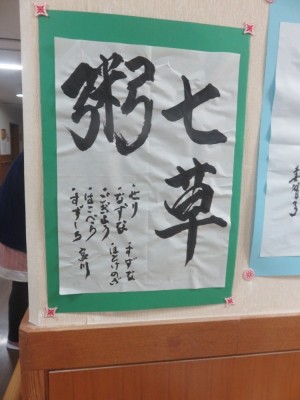 七草
粥
・せり
・なずな
・ごぎょう
・はこべら
・すずしろ
・すずな
・ほとけのざ